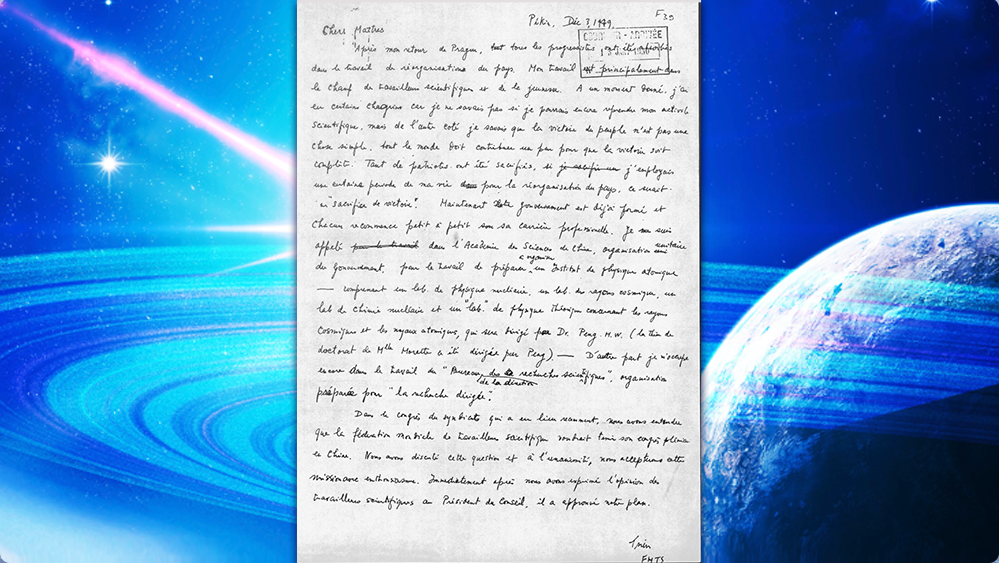 Pékin, Déc 3, 1949.
F 39
Chers Maîtres
COURRIER - ARRIVÉE
Après mon retour de Prague, tout tous les progressistes ont été absorbés
dans le travail de réorganisations du pays. Mon travail est principalement dans
le champ de travailleurs scientifiques et de la jeunesse. A un moment donné, j'ai
eu certains chagrins car je ne savais pas si je pourrais encore reprendre mon activité
scientifique, mais de l'autre coté je savais que la victoire du peuple n'est pas une
chose simple, tout le monde doit contribuer un peu pour que la victoire soit
complète. Tant de patriotes ont été sacrifiés, si j'employais
une certaine periode de ma vie pour la réorganisation du pays, ce serait
un "sacrifice de victoire". Maintenant notre gouvernement est déjà formé et
chacun recommence petit à petit sa carrière professionnelle. Je suis
appelé dans l'Académie des Sciences de Chine, organisation unitaire
du gouvernement, pour le travail de préparer, un Institut de physique atomique
à organiser
— comprenant un lab. de physique nucléaire, un lab. des rayons cosmiques, un
lab de chimie nucléaire et un "lab." de physique théorique concernant les rayons
cosmiques et les noyaux atomiques, qui sera dirigé par Dr. Peng H.W. (la thèse de
doctorat de Mlle Morette a été dirigée par Peng) — D'autre part je m'occupe
encore dans le travail du "Bureau des recherches scientifiques", organisation
de la direction
préparée pour "la recherche dirigée".
Dans le congrès du syndicats qui a eu lieu recemment, nous avons entendu
que la fédération mondiale de travailleurs scientifiques voudrait tenir son congrès plenier
en Chine. Nous avons discuté cette question et à l'unanimité, nous accepterons cette
mission avec enthousiasme. Immédiatement après nous avons exprimé l'opinion des
travailleurs scientifiques au Président du Conseil, il a approuvé notre plan.
FMTS